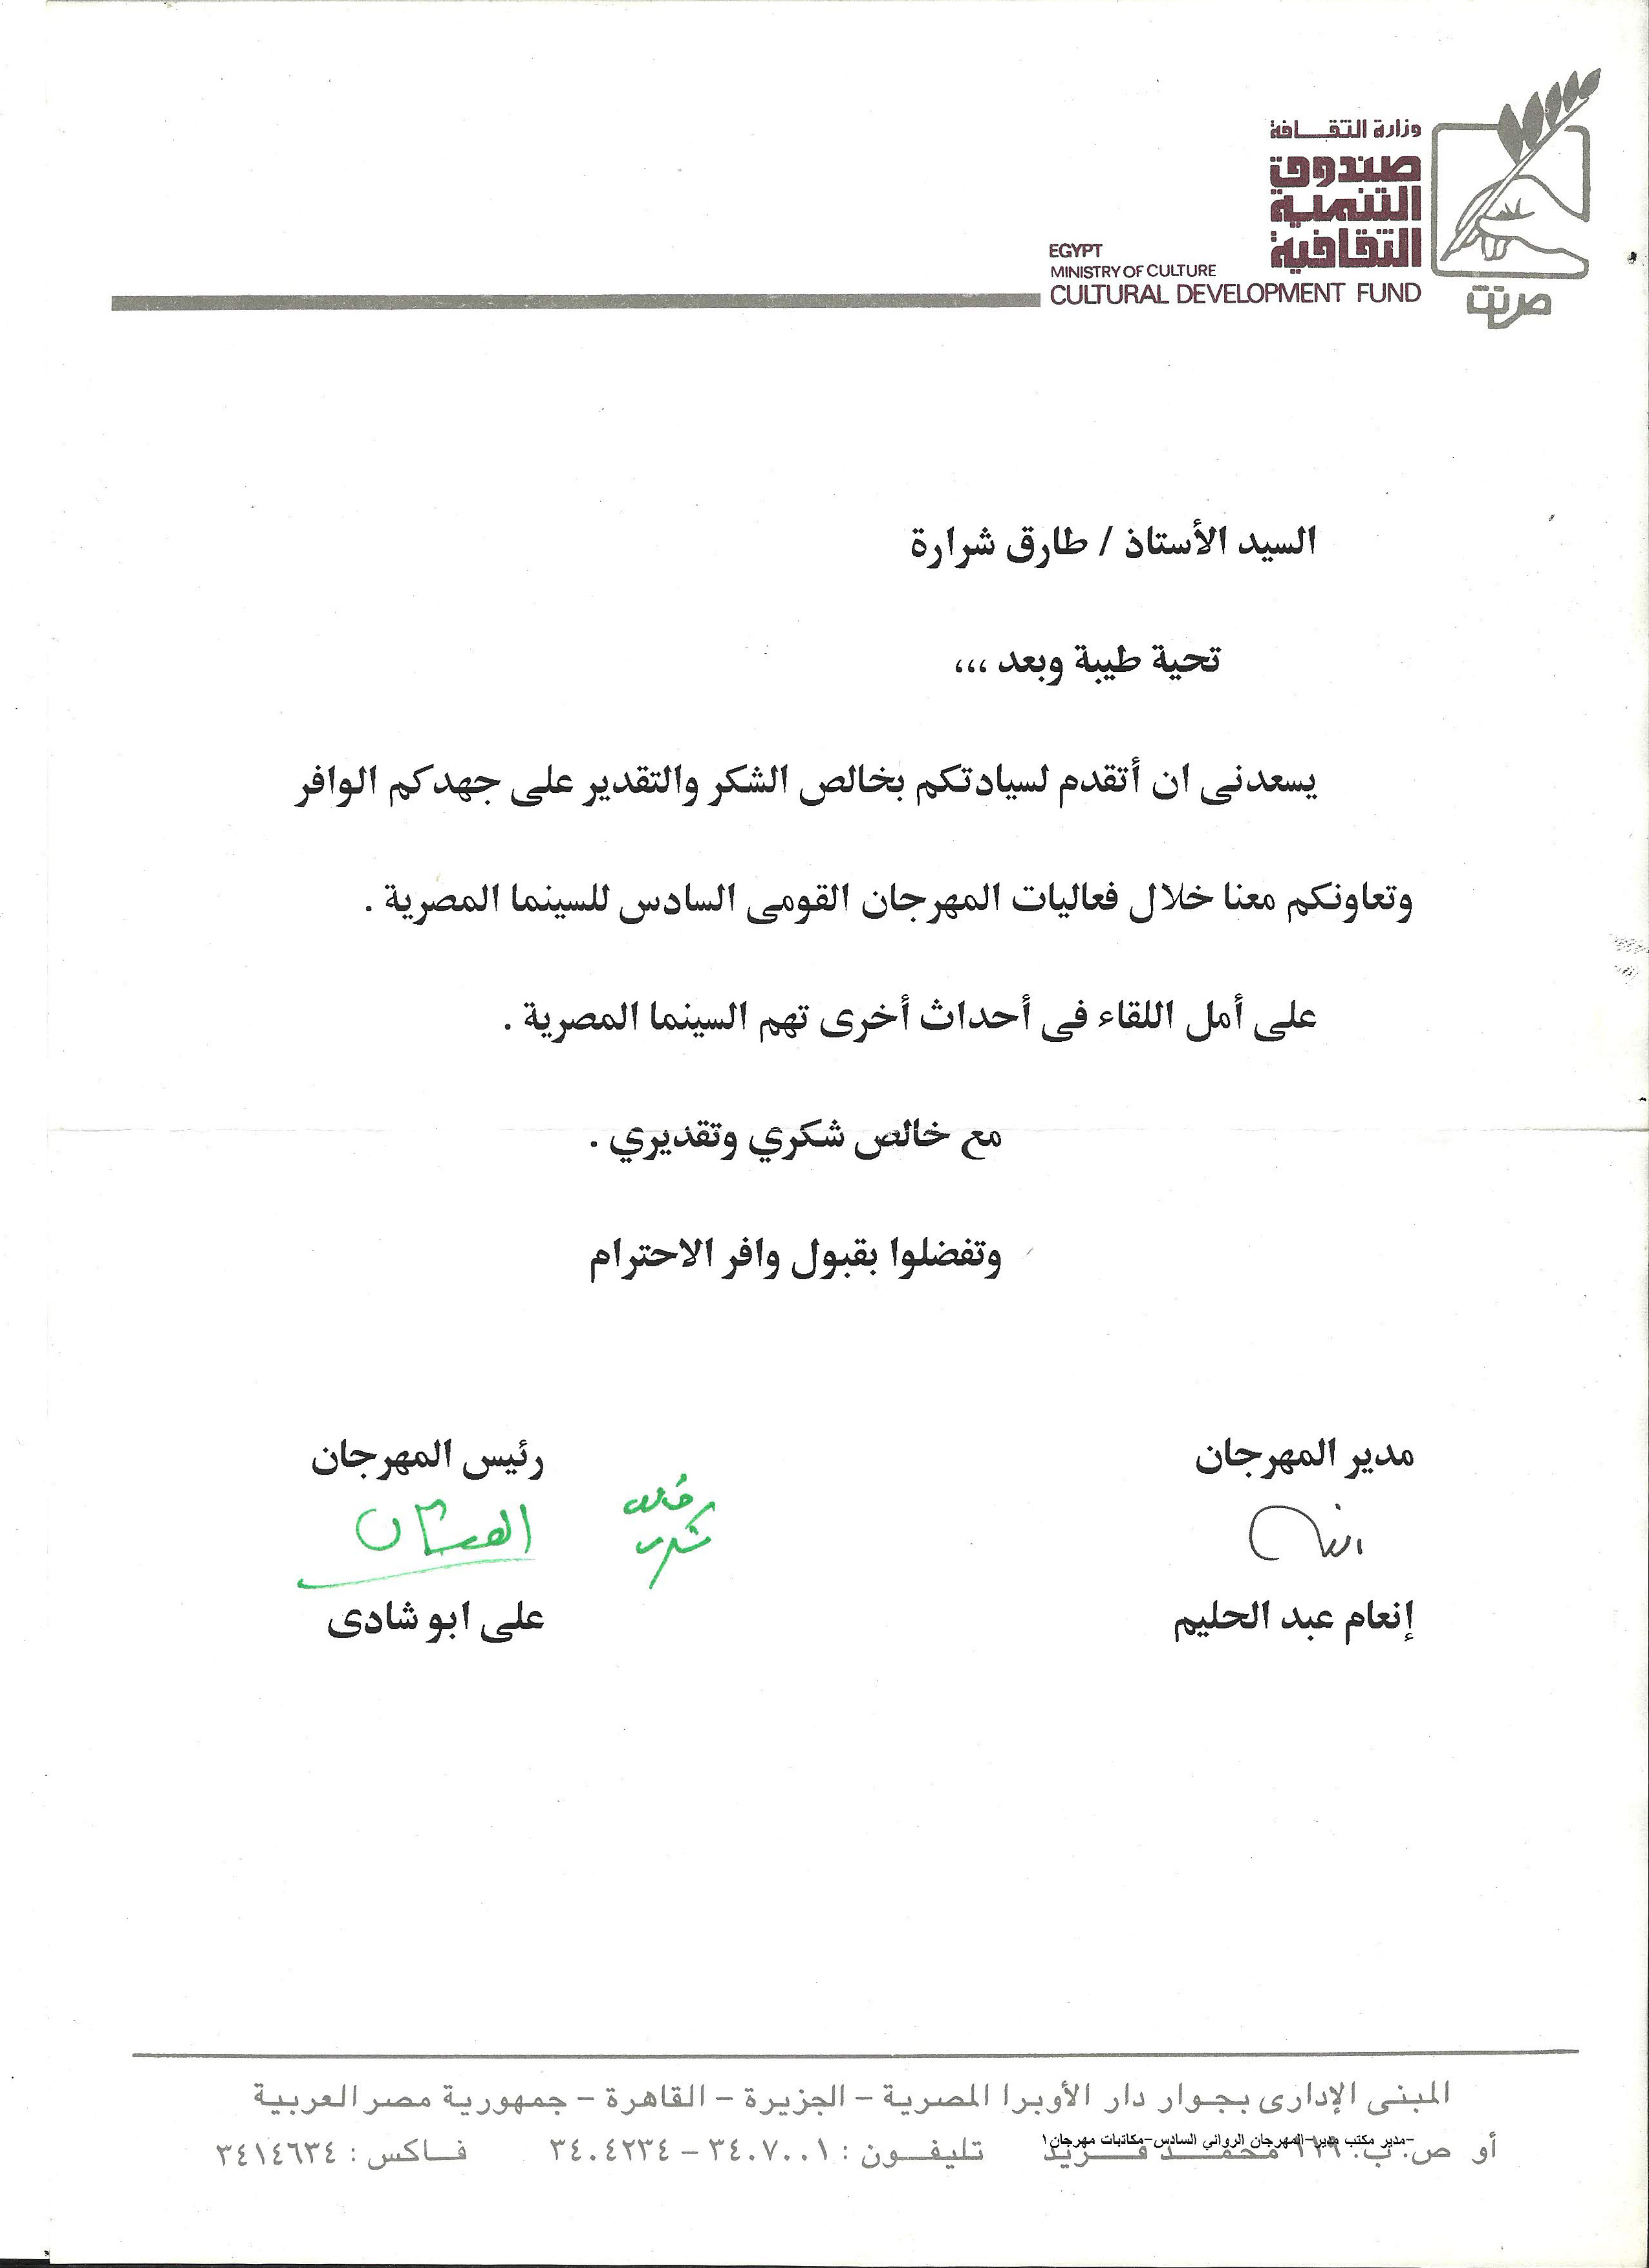 وزارة الثقافة
صندوق
التنمية
الثقافية
EGYPT
MINISTRY OF CULTURE
CULTURAL DEVELOPMENT FUND
السيد الأستاذ / طارق شرارة
تحية طيبة وبعد ،،،
يسعدنى ان أتقدم لسيادتكم بخالص الشكر والتقدير على جهدكم الوافر
وتعاونكم معنا خلال فعاليات المهرجان القومى السادس للسينما المصرية .
على أمل اللقاء فى أحداث أخرى تهم السينما المصرية .
مع خالص شكري وتقديري .
وتفضلوا بقبول وافر الاحترام
مدير المهرجان
رئيس المهرجان
خالص
شكرى
إنعام عبد الحليم
على ابو شادى
المبنى الإدارى بجوار دار الأوبرا المصرية – الجزيرة – القاهرة – جمهورية مصر العربية
-مدير مكتب مدير-المهرجان الروائي السادس-مكاتبات مهرجان١
أو ص.ب. محمد فريد تليفون : ٣٤٠٧٠٠١ – ٣٤٠٤٢٣٤ فاكس : ٣٤١٤٦٣٤